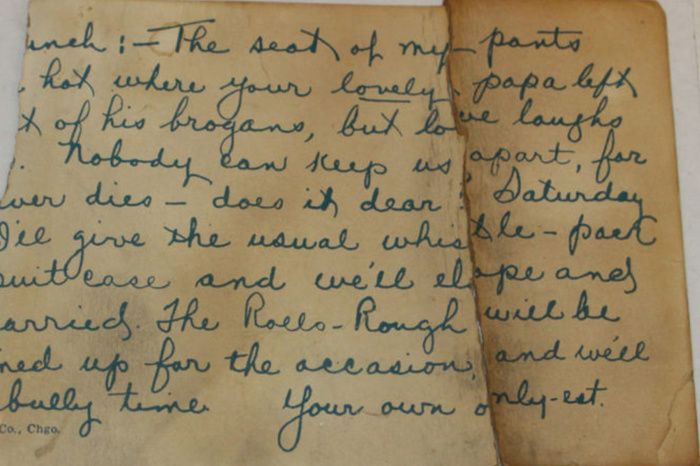 unch:- The seat of my- pants
hot where your lovely papa left
t of his brogans, but love laughs
. Nobody can keep us apart, for
ver dies - does it dear? Saturday
I'll give the usual whistle - pack
suitcase and we'll elope and
arried. The Rolls-Rough will be
ned up for the occasion, and we'll
bully time. Your own only-est.
Co., Chgo.